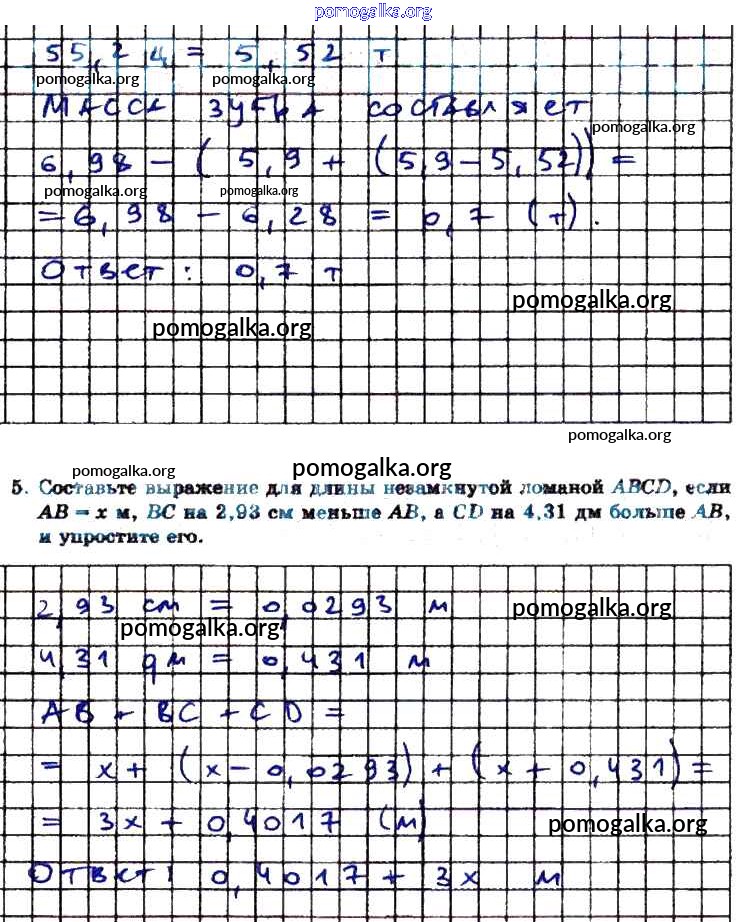 pomogalka.org
55,2 ц = 5,52 т
pomogalka.org pomogalka.org
Масса зубра составляет
pomogalka.org
6,98 - (5,9 + (5,9 - 5,52)) =
pomogalka.org pomogalka.org
= 6,98 - 6,28 = 0,7 (т).
Ответ: 0,7 т
pomogalka.org
pomogalka.org
pomogalka.org
pomogalka.org pomogalka.org
5. Составьте выражение для длины незамкнутой ломаной ABCD, если
AB = x м, BC на 2,93 см меньше AB, а CD на 4,31 дм больше AB,
и упростите его.
2,93 см = 0,0293 м
pomogalka.org
pomogalka.org
4,31 дм = 0,431 м
AB + BC + CD =
= x + (x - 0,0293) + (x + 0,431) =
= 3x + 0,4017 (м)
pomogalka.org
Ответ: 0,4017 + 3x м